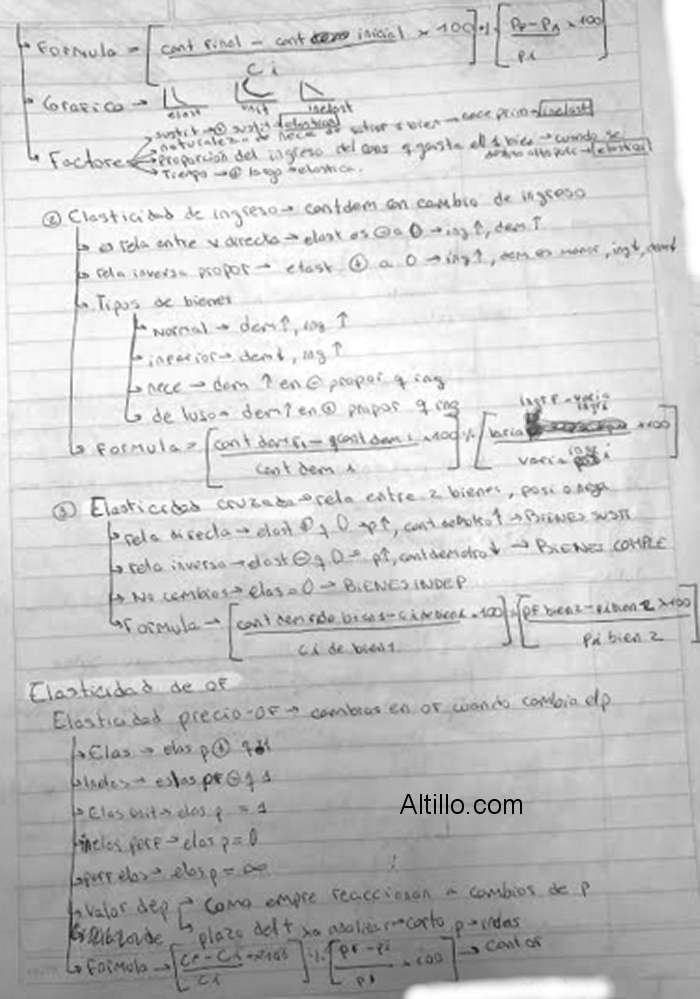 Formula = [cant final - cant inicial × 100 / Ci] % [PF - Pi × 100 / Pi]
Grafico → elast unit inelast
sustit → ⊕ sustit elastica
naturaleza de bien → inelast
Factores proporción del ingreso del cons q gasta el bien → cuando → elastica
Tiempo → ⊕ largo → elastica.
② Elasticidad de ingreso → cant dem con cambio de ingreso
rela entre directa → elast es ⊖ a 0 → ing ↑, dem ↑
rela inversa propor → elast ⊕ a 0 → ing ↑, dem es menor, ing↓, dem↓
Tipos de bienes
Normal → dem ↑, ing ↑
inferior → dem ↓, ing ↑
nece → dem ↑ en ⊖ propor q ing
de luso → dem ↑ en ⊕ propor q ing
Formula = [cant dem - cant dem i × 100 / cant dem i] % [varia × 100 / varia i]
③ Elasticidad cruzada → rela entre 2 bienes, posi o nega
rela directa → elast ⊕ q 0 → p↑, cant dem otro ↑ → BIENES SUSTI
rela inversa → elast ⊖ q 0 → p↑, cant dem otro ↓ → BIENES COMPLE
No cambios → elas = 0 → BIENES INDEP
Formula → [cant dem - Ci de bien 1 × 100 / Ci de bien 1] % [PF bien 2 - Pi bien 2 × 100 / Pi bien 2]
Elasticidad de OF
Elasticidad precio-OF → cambios en OF cuando cambia el p
Elas → elas p ⊕ q 1
Inelas → elas PF ⊖ q 1
Elas unit → elas p = 1
inelas perf → elas p = 0
perf elas → elas p = ∞
Valor dep → Como empre reaccionan a cambios de p
plazo del t xa analizar → corto p → inelas
Formula → [CF - Ci × 100 / Ci] % [PF - Pi / Pi × 100] → cant of
Altillo.com